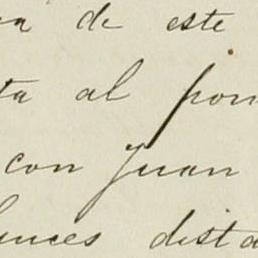 a de este
ta al pon
con Juan
lances dista